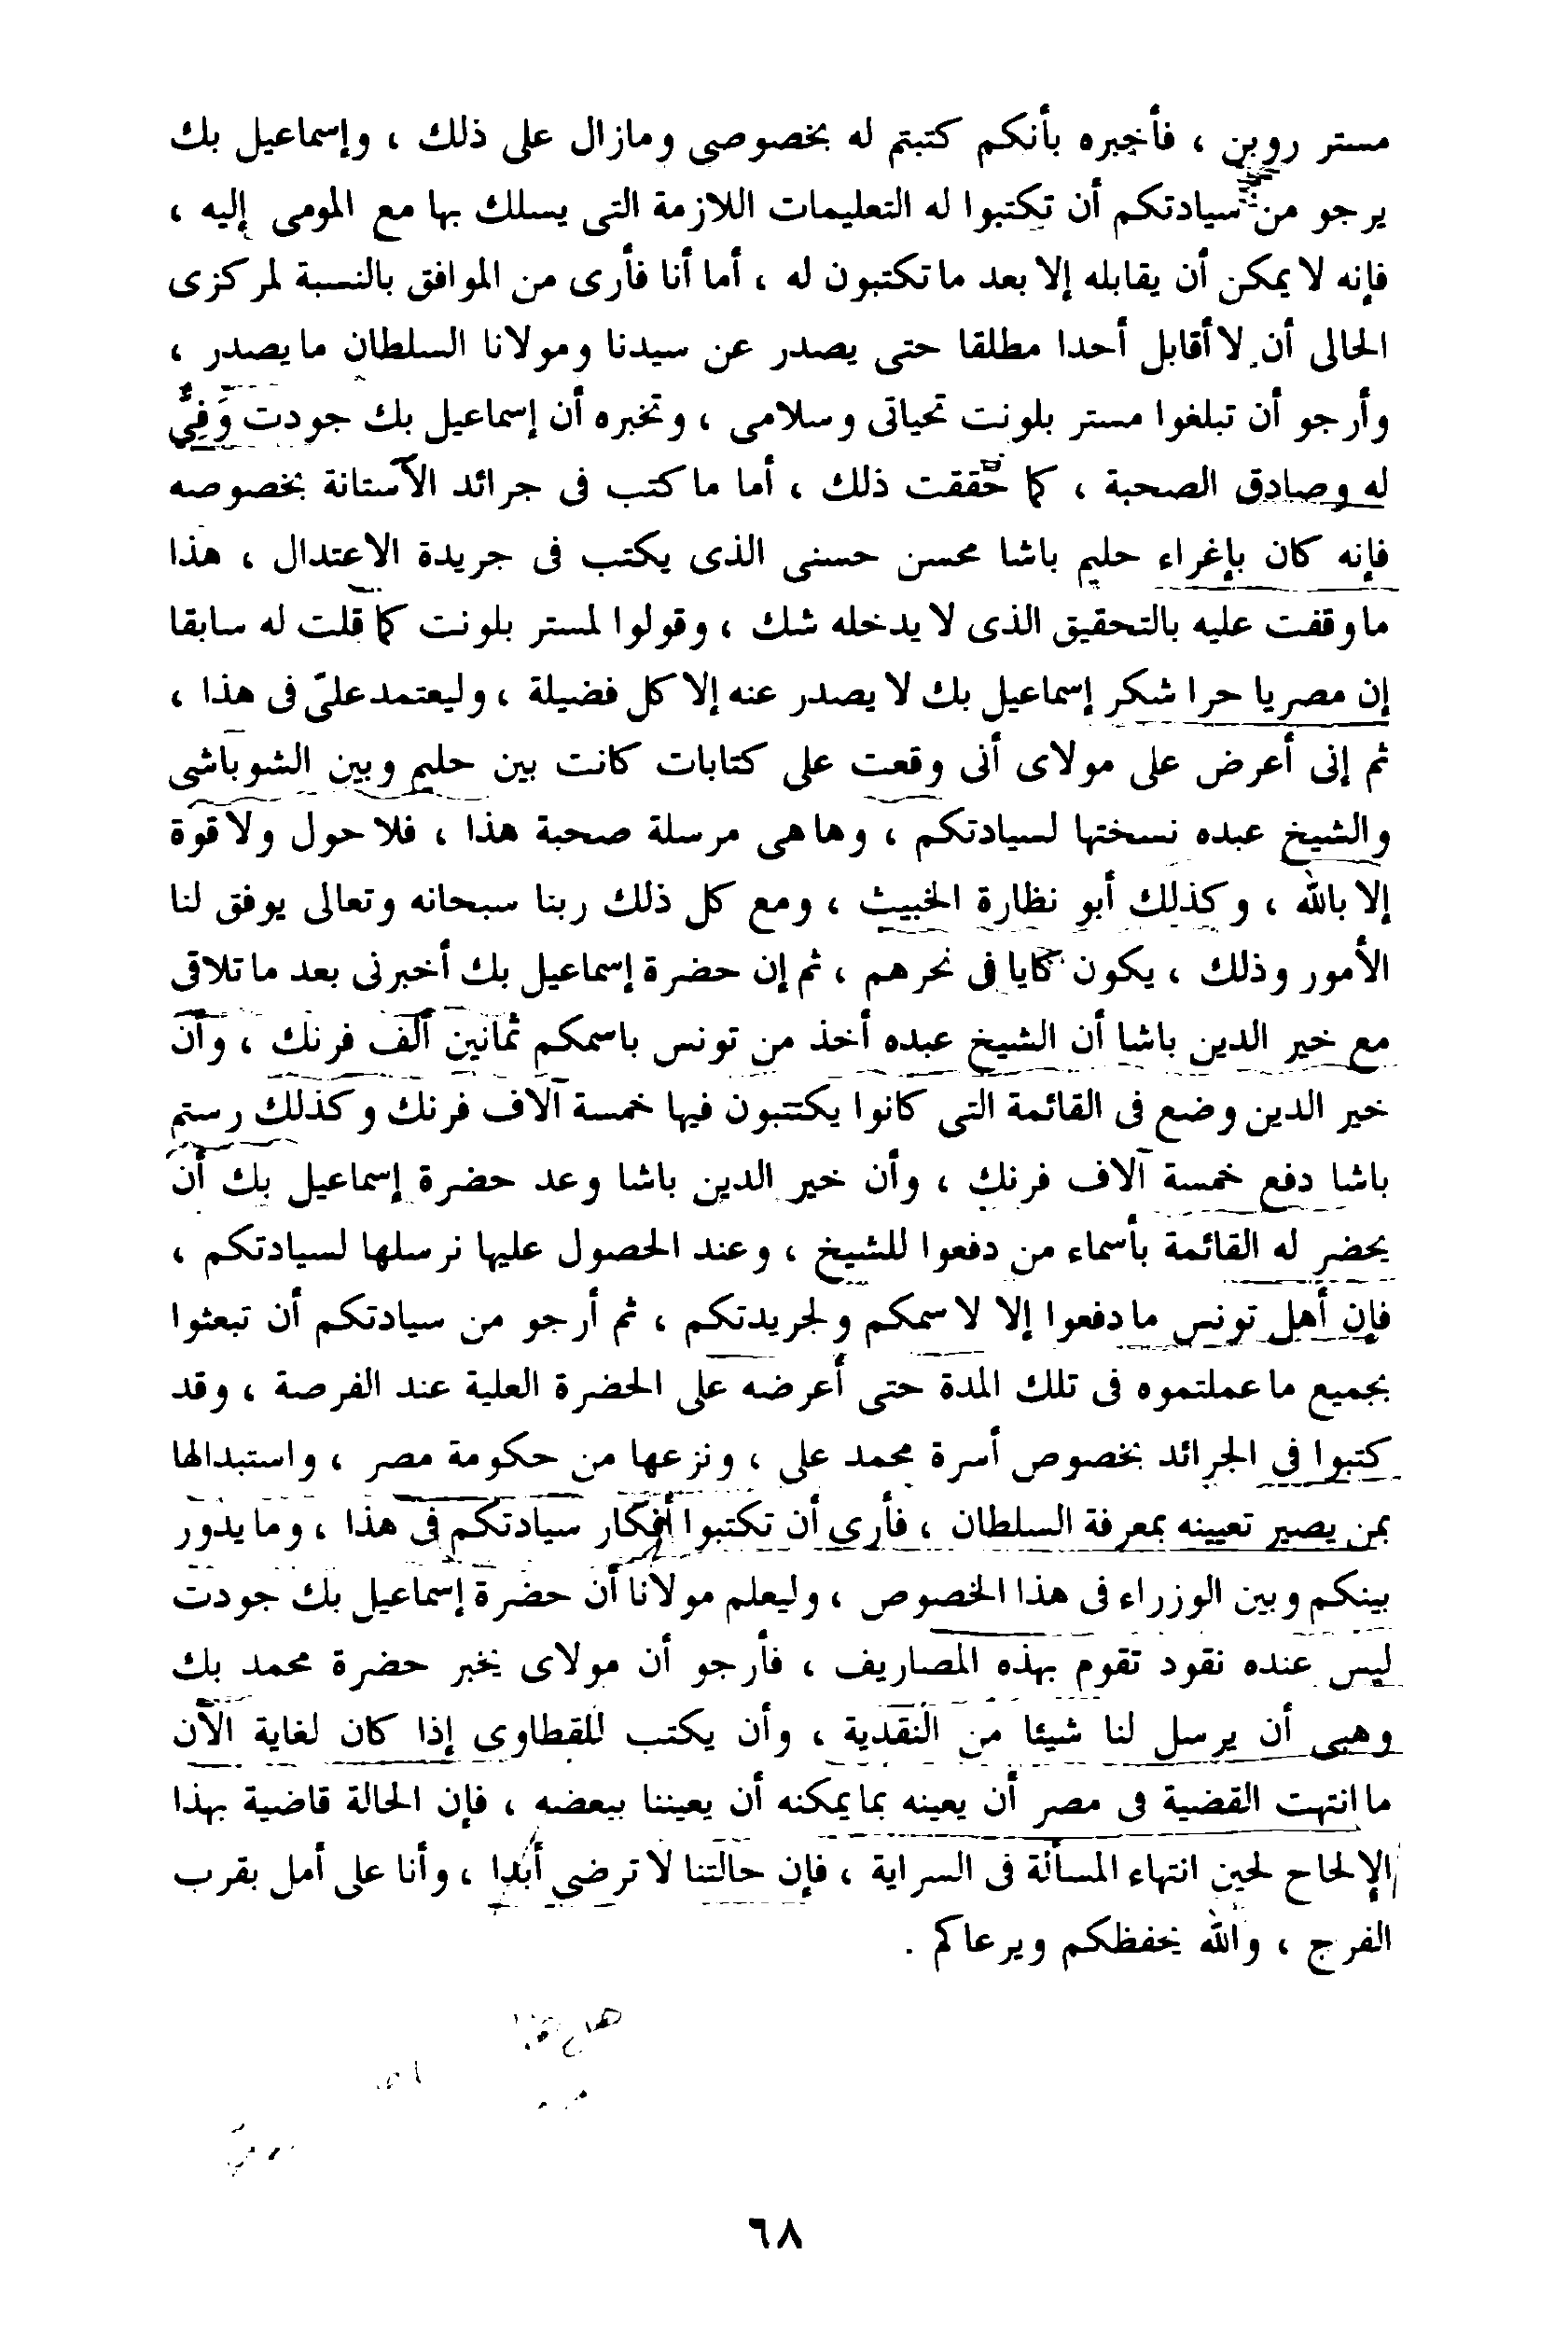 مستر روبن ، فأجبره بأنكم كتبتم له بخصوصى ومازال على ذلك ، وإسماعيل بك
يرجو من سيادتكم أن تكتبوا له التعليمات اللازمة التى يسلك بها مع المومى إليه ،
فإنه لا يمكن أن يقابله إلا بعد ما تكتبون له ، أما أنا فأرى من الموافق بالنسبة لمركزى
الحالى أن لا أقابل أحدا مطلقا حتى يصدر عن سيدنا ومولانا السلطان ما يصدر ،
وأرجو أن تبلغوا مستر بلونت تحياتى وسلامى ، وتخبره أن إسماعيل بك جودت وَفِيٌّ
له وصادق الصحبة ، كما حققت ذلك ، أما ما كتب فى جرائد الآستانة بخصوصه
فإنه كان بإغراء حليم باشا محسن حسنى الذى يكتب فى جريدة الاعتدال ، هذا
ماوقفت عليه بالتحقيق الذى لا يدخله شك ، وقولوا لمستر بلونت كما قلت له سابقا
إن مصريا حرا شكر إسماعيل بك لا يصدر عنه إلا كل فضيلة ، وليعتمد علىّ فى هذا ،
ثم إنى أعرض على مولاى أنى وقعت على كتابات كانت بين حليم وبين الشوباشى
والشيخ عبده نسختها لسيادتكم ، وهاهى مرسلة صحبة هذا ، فلا حول ولا قوة
إلا بالله ، وكذلك أبو نظارة الخبيث ، ومع كل ذلك ربنا سبحانه وتعالى يوفق لنا
الأمور وذلك ، يكون كايا فى نحرهم ، ثم إن حضرة إسماعيل بك أخبرنى بعد ما تلاقى
مع خير الدين باشا أن الشيخ عبده أخذ من تونس باسمكم ثمانين ألف فرنك ، وأن
خير الدين وضع فى القائمة التى كانوا يكتتبون فيها خمسة آلاف فرنك وكذلك رستم
باشا دفع خمسة آلاف فرنك ، وأن خير الدين باشا وعد حضرة إسماعيل بك أن
يحضر له القائمة بأسماء من دفعوا للشيخ ، وعند الحصول عليها نرسلها لسيادتكم ،
فإن أهل تونس مادفعوا إلا لا سمكم ولجريدتكم ، ثم أرجو من سيادتكم أن تبعثوا
بجميع ما عملتموه فى تلك المدة حتى أعرضه على الحضرة العلية عند الفرصة ، وقد
كتبوا فى الجرائد بخصوص أسرة محمد على ، ونزعها من حكومة مصر ، واستبدالها
بمن يصير تعيينه بمعرفة السلطان ، فأرى أن تكتبوا أفكار سيادتكم فى هذا ، وما يدور
بينكم وبين الوزراء فى هذا الخصوص ، وليعلم مولانا أن حضرة إسماعيل بك جودت
ليس عنده نقود تقوم بهذه المصاريف ، فأرجو أن مولاى يخبر حضرة محمد بك
وهبى أن يرسل لنا شيئا من النقدية ، وأن يكتب للقطاوى إذا كان لغاية الآن
ما انتهت القضية فى مصر أن يعينه بما يمكنه أن يعيننا ببعضه ، فإن الحالة قاضية بهذا
الإلحاح لحين انتهاء المسألة فى السراية ، فإن حالتنا لا ترضى أبدا ، وأنا على أمل بقرب
الفرج ، والله يحفظكم ويرعاكم .
٦٨